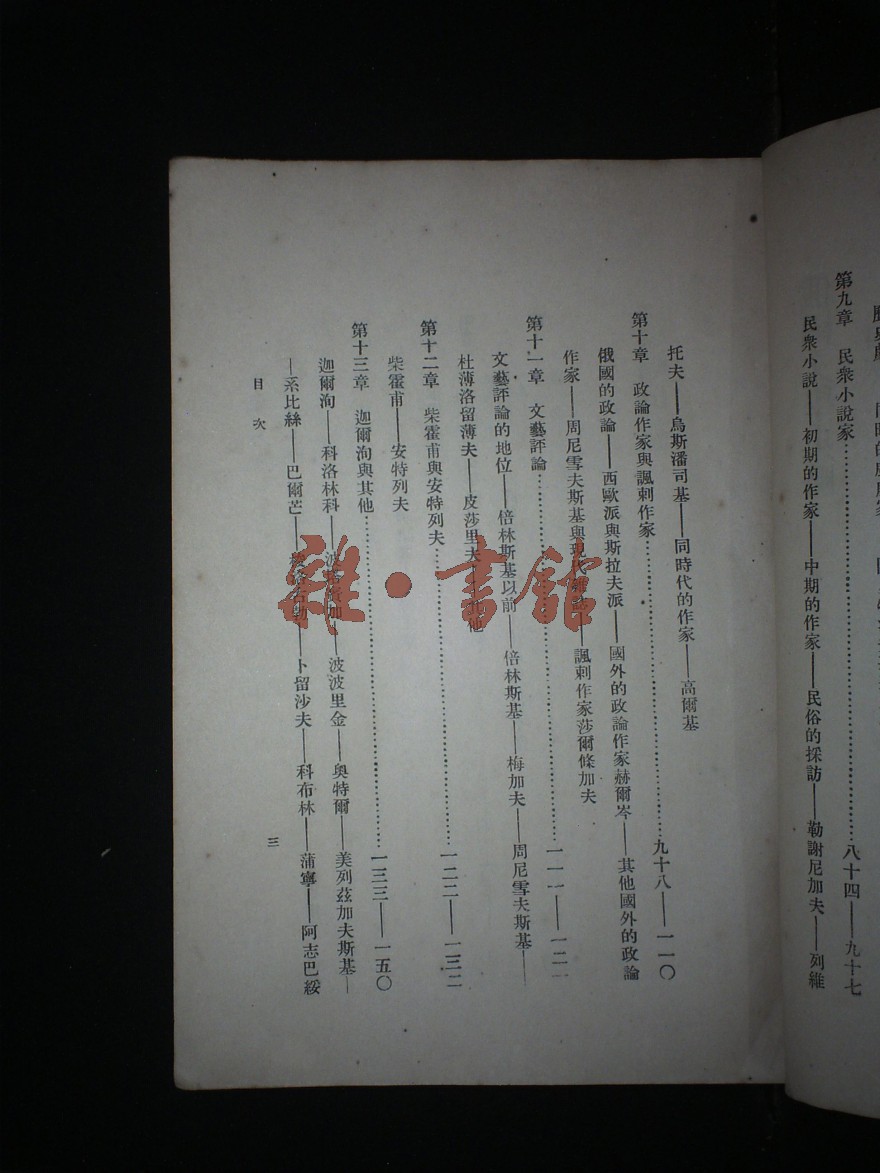 第九章　民衆小說家……………八十四——九十七
民衆小說——初期的作家——中期的作家——民俗的採訪——勒謝尼加夫——列維
托夫——烏斯潘司基——同時代的作家——高爾基
第十章　政論作家與諷刺作家……………九十八——一一〇
俄國的政論——西歐派與斯拉夫派——國外的政論作家赫爾岑——其他國外的政論
作家——周尼雪夫斯基與現代雜誌——諷刺作家莎爾條加夫
第十一章　文藝評論……………一一一——一二一
文藝評論的地位——倍林斯基以前——倍林斯基——梅加夫——周尼雪夫斯基——
杜薄洛留薄夫——皮莎里夫——其他
第十二章　柴霍甫與安特列夫……………一二二——一三二
柴霍甫——安特列夫
第十三章　迦爾洵與其他……………一三三——一五〇
迦爾洵——科洛林科——波　加——波波里金——奧特爾——美列茲加夫斯基—
—系比絲——巴爾芒——　——卜留沙夫——科布林——蒲寧——阿志巴綏
目次
三
雜·書館